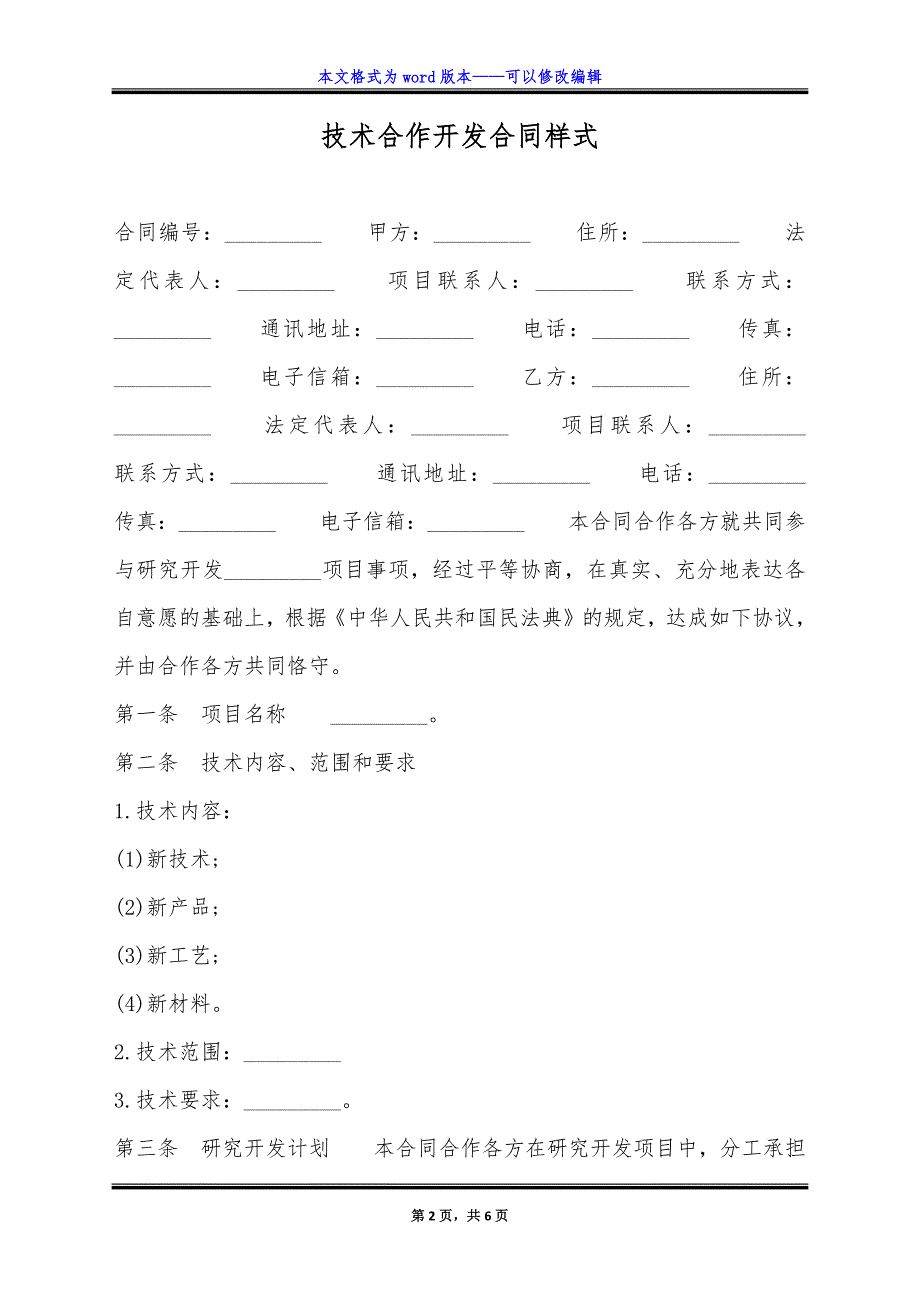 本文格式为 word 版本——可以修改编辑
技术合作开发合同样式
合同编号：_________ 甲方：_________ 住所：_________ 法
定代表人：_________ 项目联系人：_________ 联系方式：
_________ 通讯地址：_________ 电话：_________ 传真：
_________ 电子信箱：_________ 乙方：_________ 住所：
_________ 法定代表人：_________ 项目联系人：_________
联系方式：_________ 通讯地址：_________ 电话：_________
传真：_________ 电子信箱：_________ 本合同合作各方就共同参
与研究开发_________项目事项，经过平等协商，在真实、充分地表达各
自意愿的基础上，根据《中华人民共和国民法典》的规定，达成如下协议，
并由合作各方共同恪守。
第一条 项目名称 _________。
第二条 技术内容、范围和要求
1.技术内容：
(1)新技术；
(2)新产品；
(3)新工艺；
(4)新材料。
2.技术范围：_________
3.技术要求：_________。
第三条 研究开发计划 本合同合作各方在研究开发项目中，分工承担
第 2 页，共 6 页